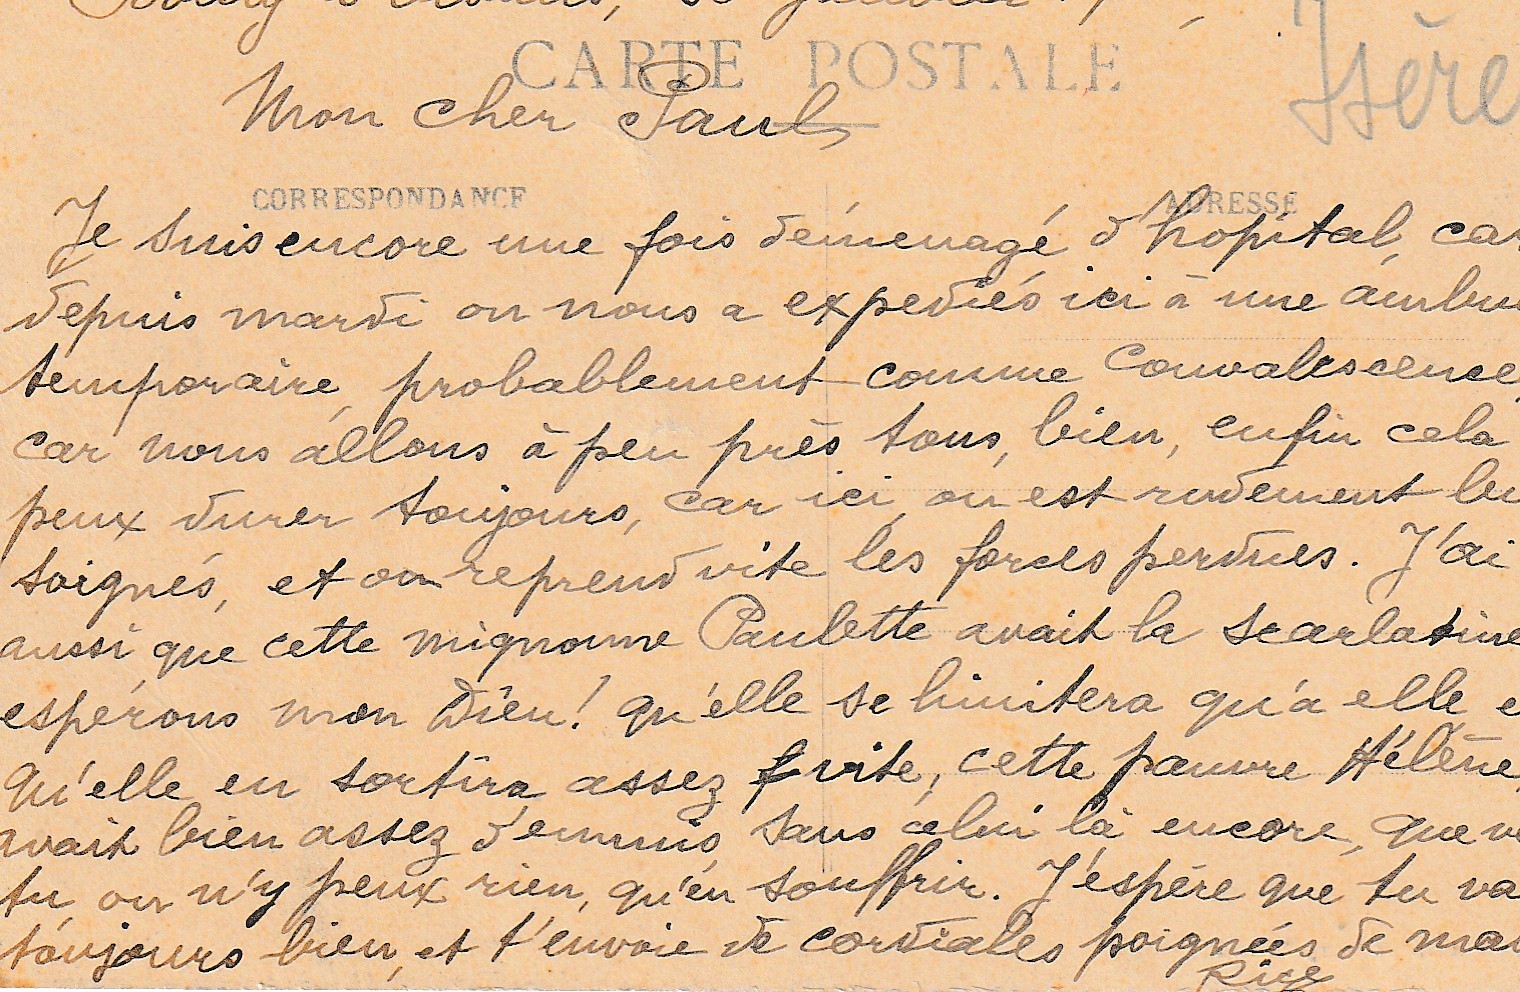 CARTE POSTALE
Isère
Mon cher Paul,
CORRESPONDANCE
ADRESSE
Je suis encore une fois déménagé d'hôpital, car
depuis mardi on nous a expediés ici à une
temporaire, probablement comme Convalescence,
car nous allons à peu près tous, bien, enfin cela
peux durer toujours, car ici, on est rudement
soignés, et on reprend vite les forces perdues. J'ai
aussi que cette mignonne Paulette avait la scarlatine
espérons mon Dieu! qu'elle se limitera qu'à elle
qu'elle en sortira assez vite, cette pauvre Hélène,
avait bien assez d'ennuis, sans celui là encore, que
tu, on n'y peux rien, qu'en souffrir. J'espère que tu va
toujours bien, et t'envoie de cordiales poignées de